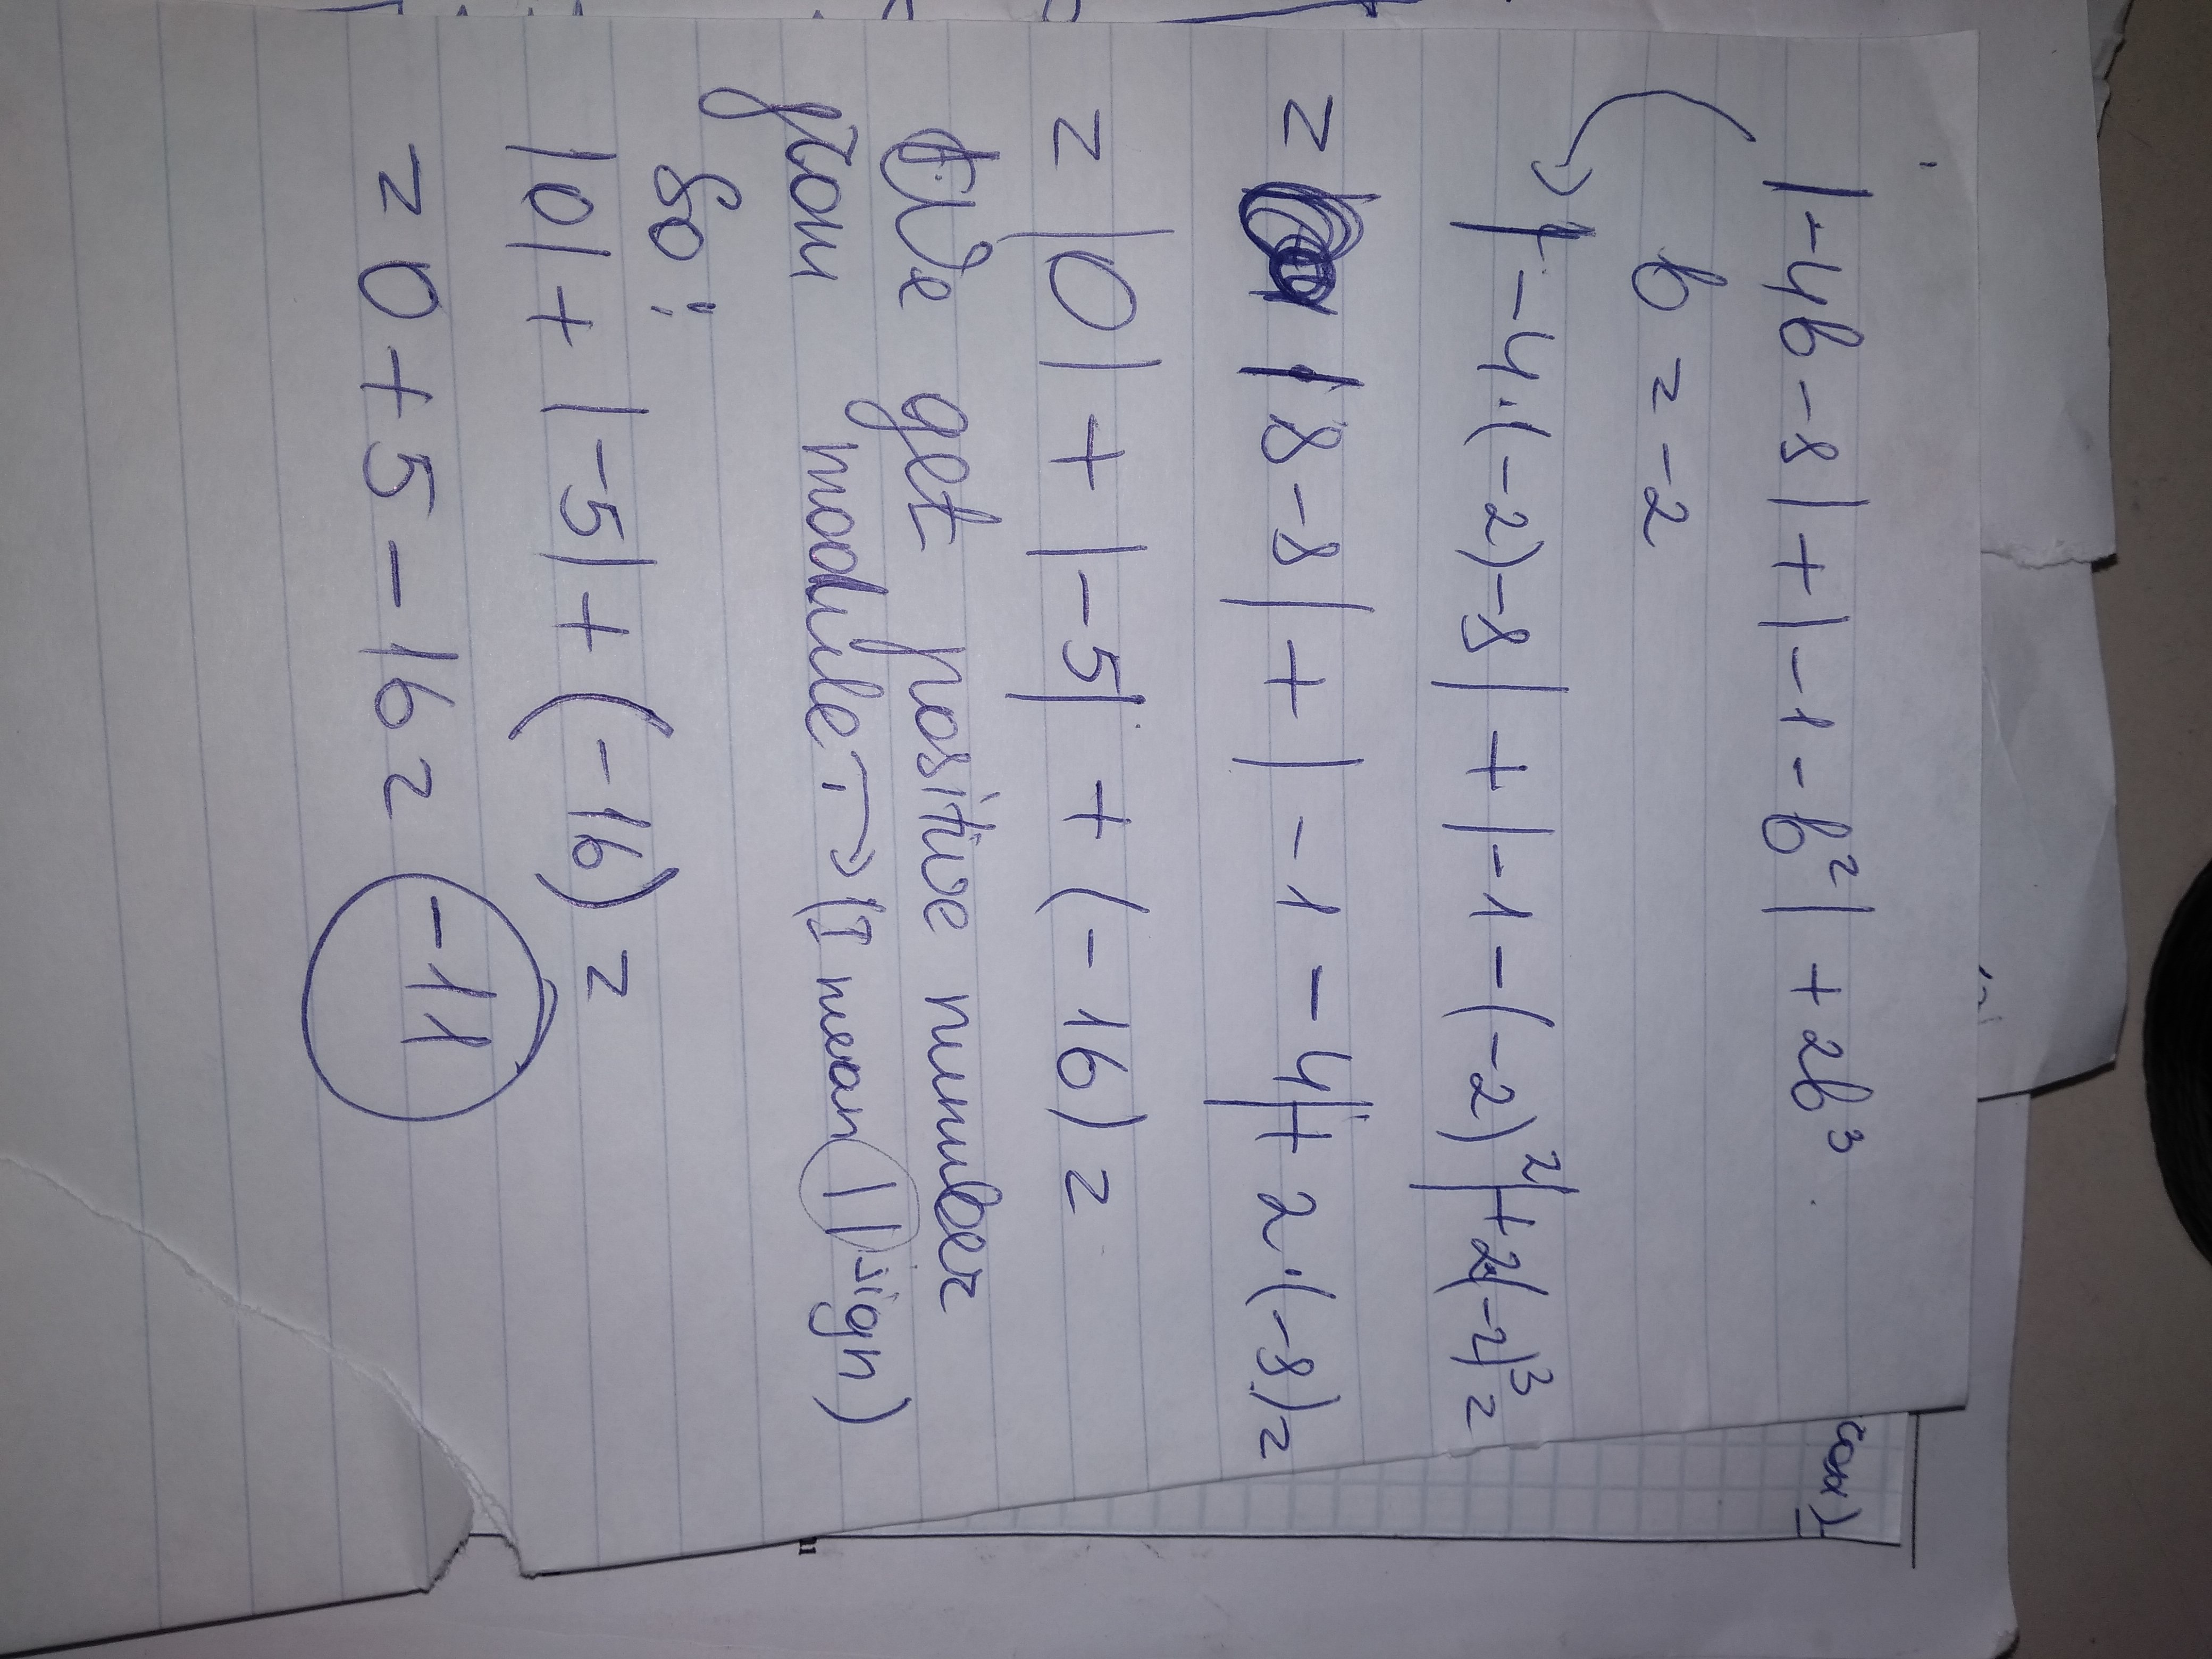 |-4b-8|+|-1-b²|+2b³
b = -2
|-4·(-2)-8|+|-1-(-2)²|+2(-2)³=
= |8-8|+|-1-4|+2·(-8)=
= |0|+|-5|+(-16)=
We get positive number
from module → (I mean || sign)
So:
|0|+|-5|+(-16)=
= 0+5-16= -11
cosx)